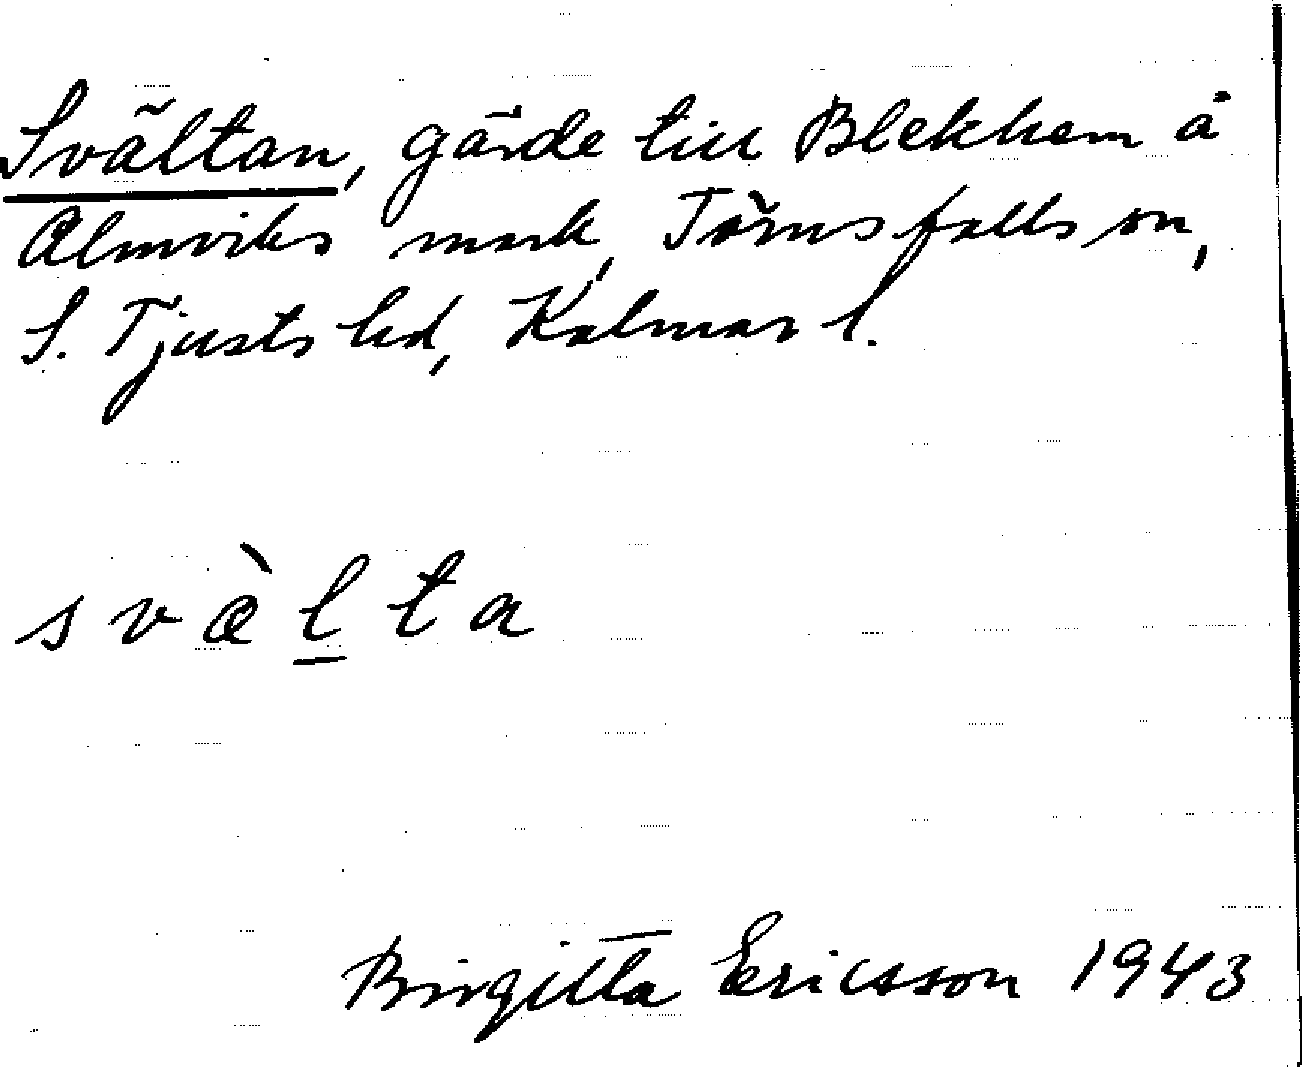 Svältan, gärde till Blekhem å
Almviks mark, Törnsfalls sn,
S. Tjusts hd, Kalmar l.
svæ̀l̲ta
Birgitta Ericsson 1943